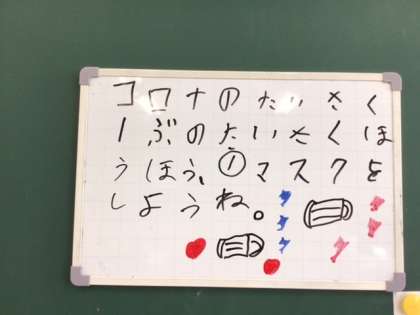 コロナのたいさく
1ぶのたいさくほ
うほう、①マスクを
しようね。